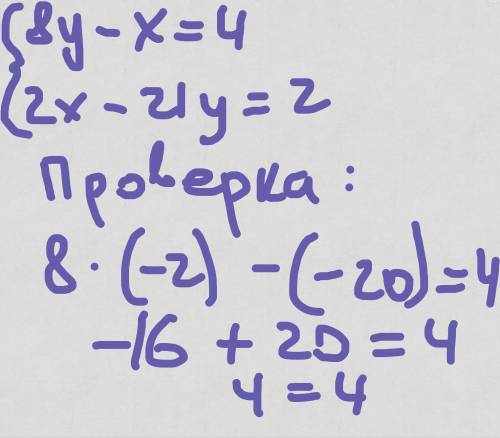 {8y - x = 4
{2x - 21y = 2
Проверка:
8 · (-2) - (-20) = 4
-16 + 20 = 4
4 = 4